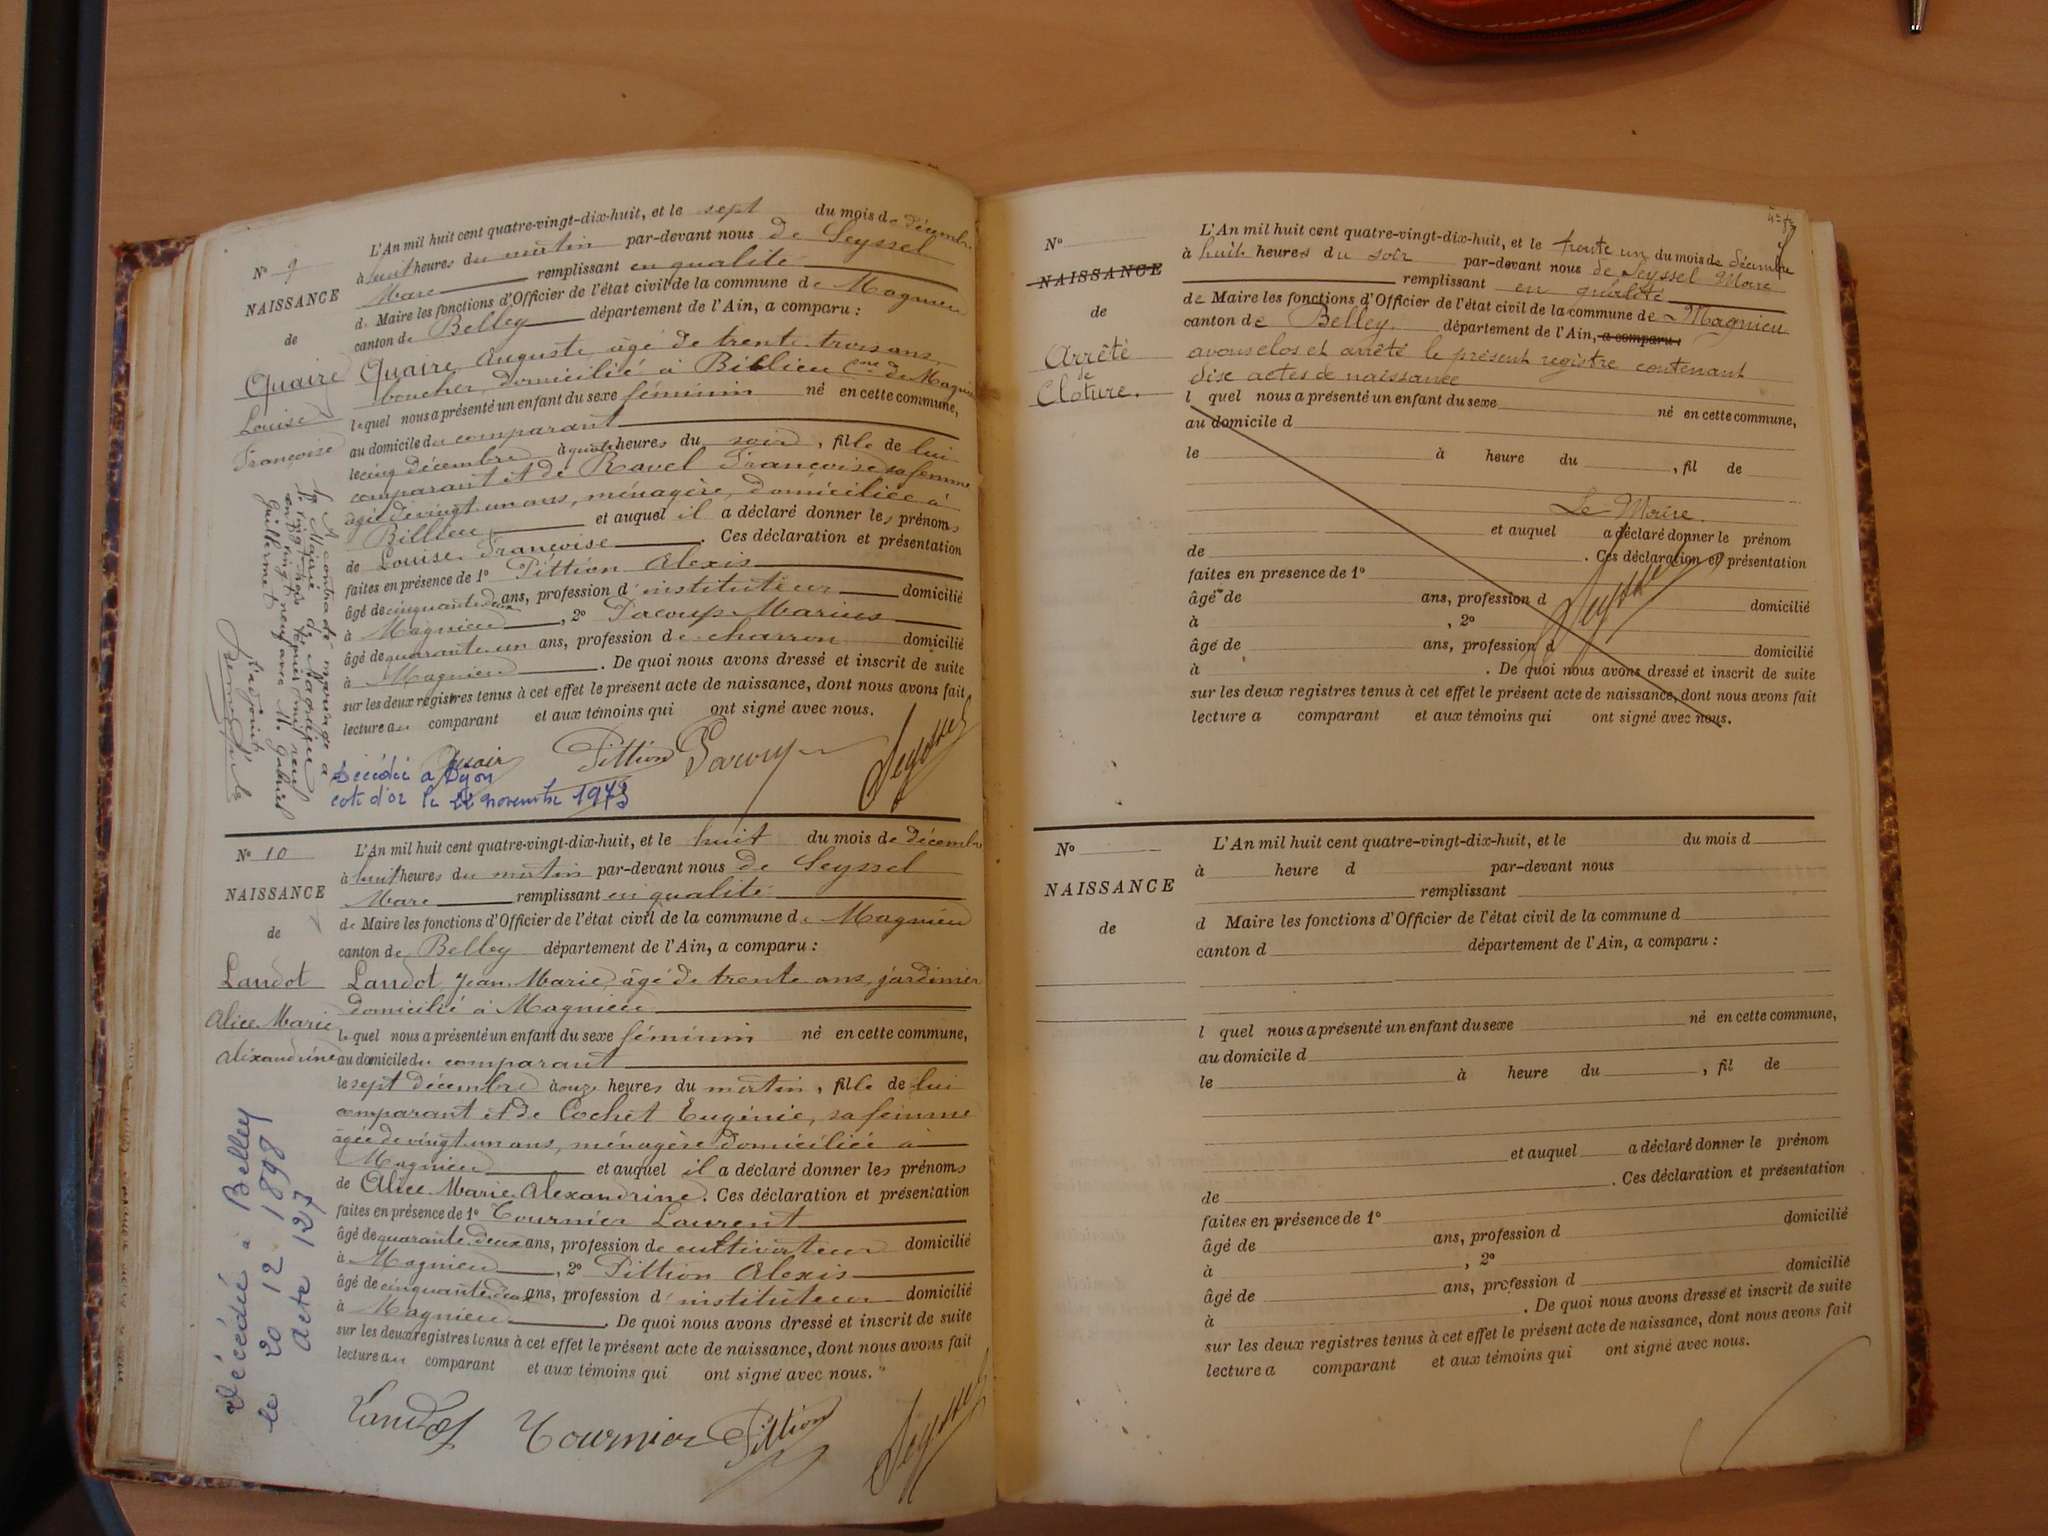 N° 9
NAISSANCE
de
Quaire
Louise
Françoise
L'An mil huit cent quatre-vingt-dix-huit, et le sept du mois de décembre
à huit heures du matin par-devant nous de Seyssel
Marc remplissant en qualité
de Maire les fonctions d'Officier de l'état civil de la commune de Magnieu
canton de Belley département de l'Ain, a comparu :
Quaire Auguste âgé de trente trois ans,
boucher, domicilié à Billieu Cne de Magnieu
lequel nous a présenté un enfant du sexe féminin né en cette commune,
au domicile du comparant
le cinq décembre à quatre heures du soir, fille de lui
comparant et de Ravel Françoise sa femme
âgée de vingt un ans, ménagère, domiciliée à
Billieu et auquel il a déclaré donner les prénoms
de Louise Françoise. Ces déclaration et présentation
faites en présence de 1° Pittion Alexis
âgé de cinquante deux ans, profession d'instituteur domicilié
à Magnieu, 2° Pacoup Marius
âgé de quarante un ans, profession de charron domicilié
à Magnieu. De quoi nous avons dressé et inscrit de suite
sur les deux registres tenus à cet effet le présent acte de naissance, dont nous avons fait
lecture au comparant et aux témoins qui ont signé avec nous.
A contracté mariage à
la Mairie de
le vingt trois
vingt neuf avec M. Gabriel
Guillermet
L'adjoint
Quair Pittion Pacoup Seyssel
Décédée à Dijon
cote d'or le 22 novembre 1973
N° 10
NAISSANCE
de
Landot
Alice Marie
Alixandrine
L'An mil huit cent quatre-vingt-dix-huit, et le huit du mois de décembre
à huit heures du matin par-devant nous de Seyssel
Marc remplissant en qualité
de Maire les fonctions d'Officier de l'état civil de la commune de Magnieu
canton de Belley département de l'Ain, a comparu :
Landot Jean Marie âgé de trente ans, jardinier
domicilié à Magnieu
lequel nous a présenté un enfant du sexe féminin né en cette commune,
au domicile du comparant
le sept décembre à onze heures du matin, fille de lui
comparant et de Cochet Eugénie, sa femme
âgée de vingt un ans, ménagère domiciliée à
Magnieu et auquel il a déclaré donner les prénoms
de Alice Marie Alexandrine. Ces déclaration et présentation
faites en présence de 1° Tournier Laurent
âgé de quarante deux ans, profession de cultivateur domicilié
à Magnieu, 2° Pittion Alexis
âgé de cinquante deux ans, profession d'instituteur domicilié
à Magnieu. De quoi nous avons dressé et inscrit de suite
sur les deux registres tenus à cet effet le présent acte de naissance, dont nous avons fait
lecture au comparant et aux témoins qui ont signé avec nous.
Décédée à Belley
le 20 12 1898
Acte 127
Landot Tournier Pittion Seyssel
N°
NAISSANCE
de
Arrêté
de
Cloture.
L'An mil huit cent quatre-vingt-dix-huit, et le trente un du mois de décembre
à huit heures du soir par-devant nous de Seyssel Marc
remplissant en qualité
de Maire les fonctions d'Officier de l'état civil de la commune de Magnieu
canton de Belley département de l'Ain, a comparu :
avons clos et arrêté le présent registre contenant
dix actes de naissance
l quel nous a présenté un enfant du sexe né en cette commune,
au domicile d
le à heure du , fil de
Le Maire
et auquel a déclaré donner le prénom
de . Ces déclaration et présentation
faites en presence de 1°
âgé de ans, profession d domicilié
à , 2°
âgé de ans, profession d domicilié
à . De quoi nous avons dressé et inscrit de suite
sur les deux registres tenus à cet effet le présent acte de naissance, dont nous avons fait
lecture a comparant et aux témoins qui ont signé avec nous.
Seyssel
N°
NAISSANCE
de
L'An mil huit cent quatre-vingt-dix-huit, et le du mois d
à heure d par-devant nous
remplissant
d Maire les fonctions d'Officier de l'état civil de la commune d
canton d département de l'Ain, a comparu :
l quel nous a présenté un enfant du sexe né en cette commune,
au domicile d
le à heure du , fil de
et auquel a déclaré donner le prénom
de . Ces déclaration et présentation
faites en présence de 1°
âgé de ans, profession d domicilié
à , 2°
âgé de ans, profession d domicilié
à . De quoi nous avons dressé et inscrit de suite
sur les deux registres tenus à cet effet le présent acte de naissance, dont nous avons fait
lecture a comparant et aux témoins qui ont signé avec nous.